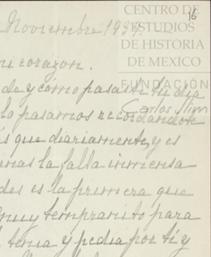 CENTRO DE
ESTUDIOS
DE HISTORIA
DE MEXICO
FUNDACIÓN
Carlos Slim
16
Noviembre 1937
mi corazon.
de y como pasaste tu dia
lo pasamos recordandote
es que diariamente, y es
la falla inmensa
des es la primera que
muy tempranito para
tema y pedia por ti y